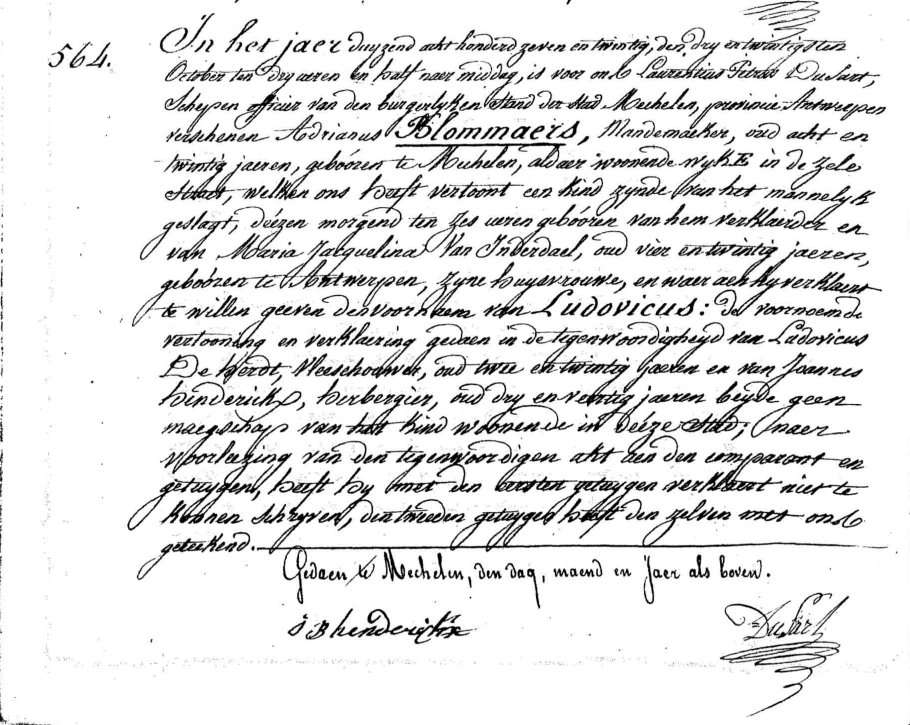 564.
In het jaer duyzend acht honderd zeven en twintig, den dry en twintigsten
October ten dry ueren en half naer middag, is voor ons Laurentius Petrus DuSart,
Schepen officier van den burgerlyken Stand der Stad Mechelen, provincie Antwerpen
verschenen Adrianus Blommaers, Mandemaeker, oud acht en
twintig jaeren, gebóóren te Mechelen, aldaer woonende wyk E in de zele
Straet, welken ons heeft vertoont een kind zynde van het mannelyk
geslagt, déézen morgend ten zes ueren gebóóren van hem verklaerder en
van Maria Jacquelina Van Inderdael, oud vier en twintig jaeren,
gebóóren te Antwerpen, zyne huysvrouwe, en waer aen hy verklaert
te willen geeven den voornaem van Ludovicus: de voornoemde
vertooning en verklaering gedaen in de tegenwoordigheyd van Ludovicus
De Herdt, Vleeschouwer, oud twee en twintig jaeren en van Joannes
Hinderickx, herbergier, oud dry en veertig jaeren beyde geen
maegschap van het kind woonende in déeze Stad; naer
voorleezing van den tegenwoordigen akt aen den comparant en
getuygen, heeft hy met den eersten getuygen verklaert niet te
konnen schryven, den tweeden getuygen heeft den zelven met ons
geteekend.
Gedaen te Mechelen, den dag, maend en Jaer als boven.
J B henderickx
DuSart